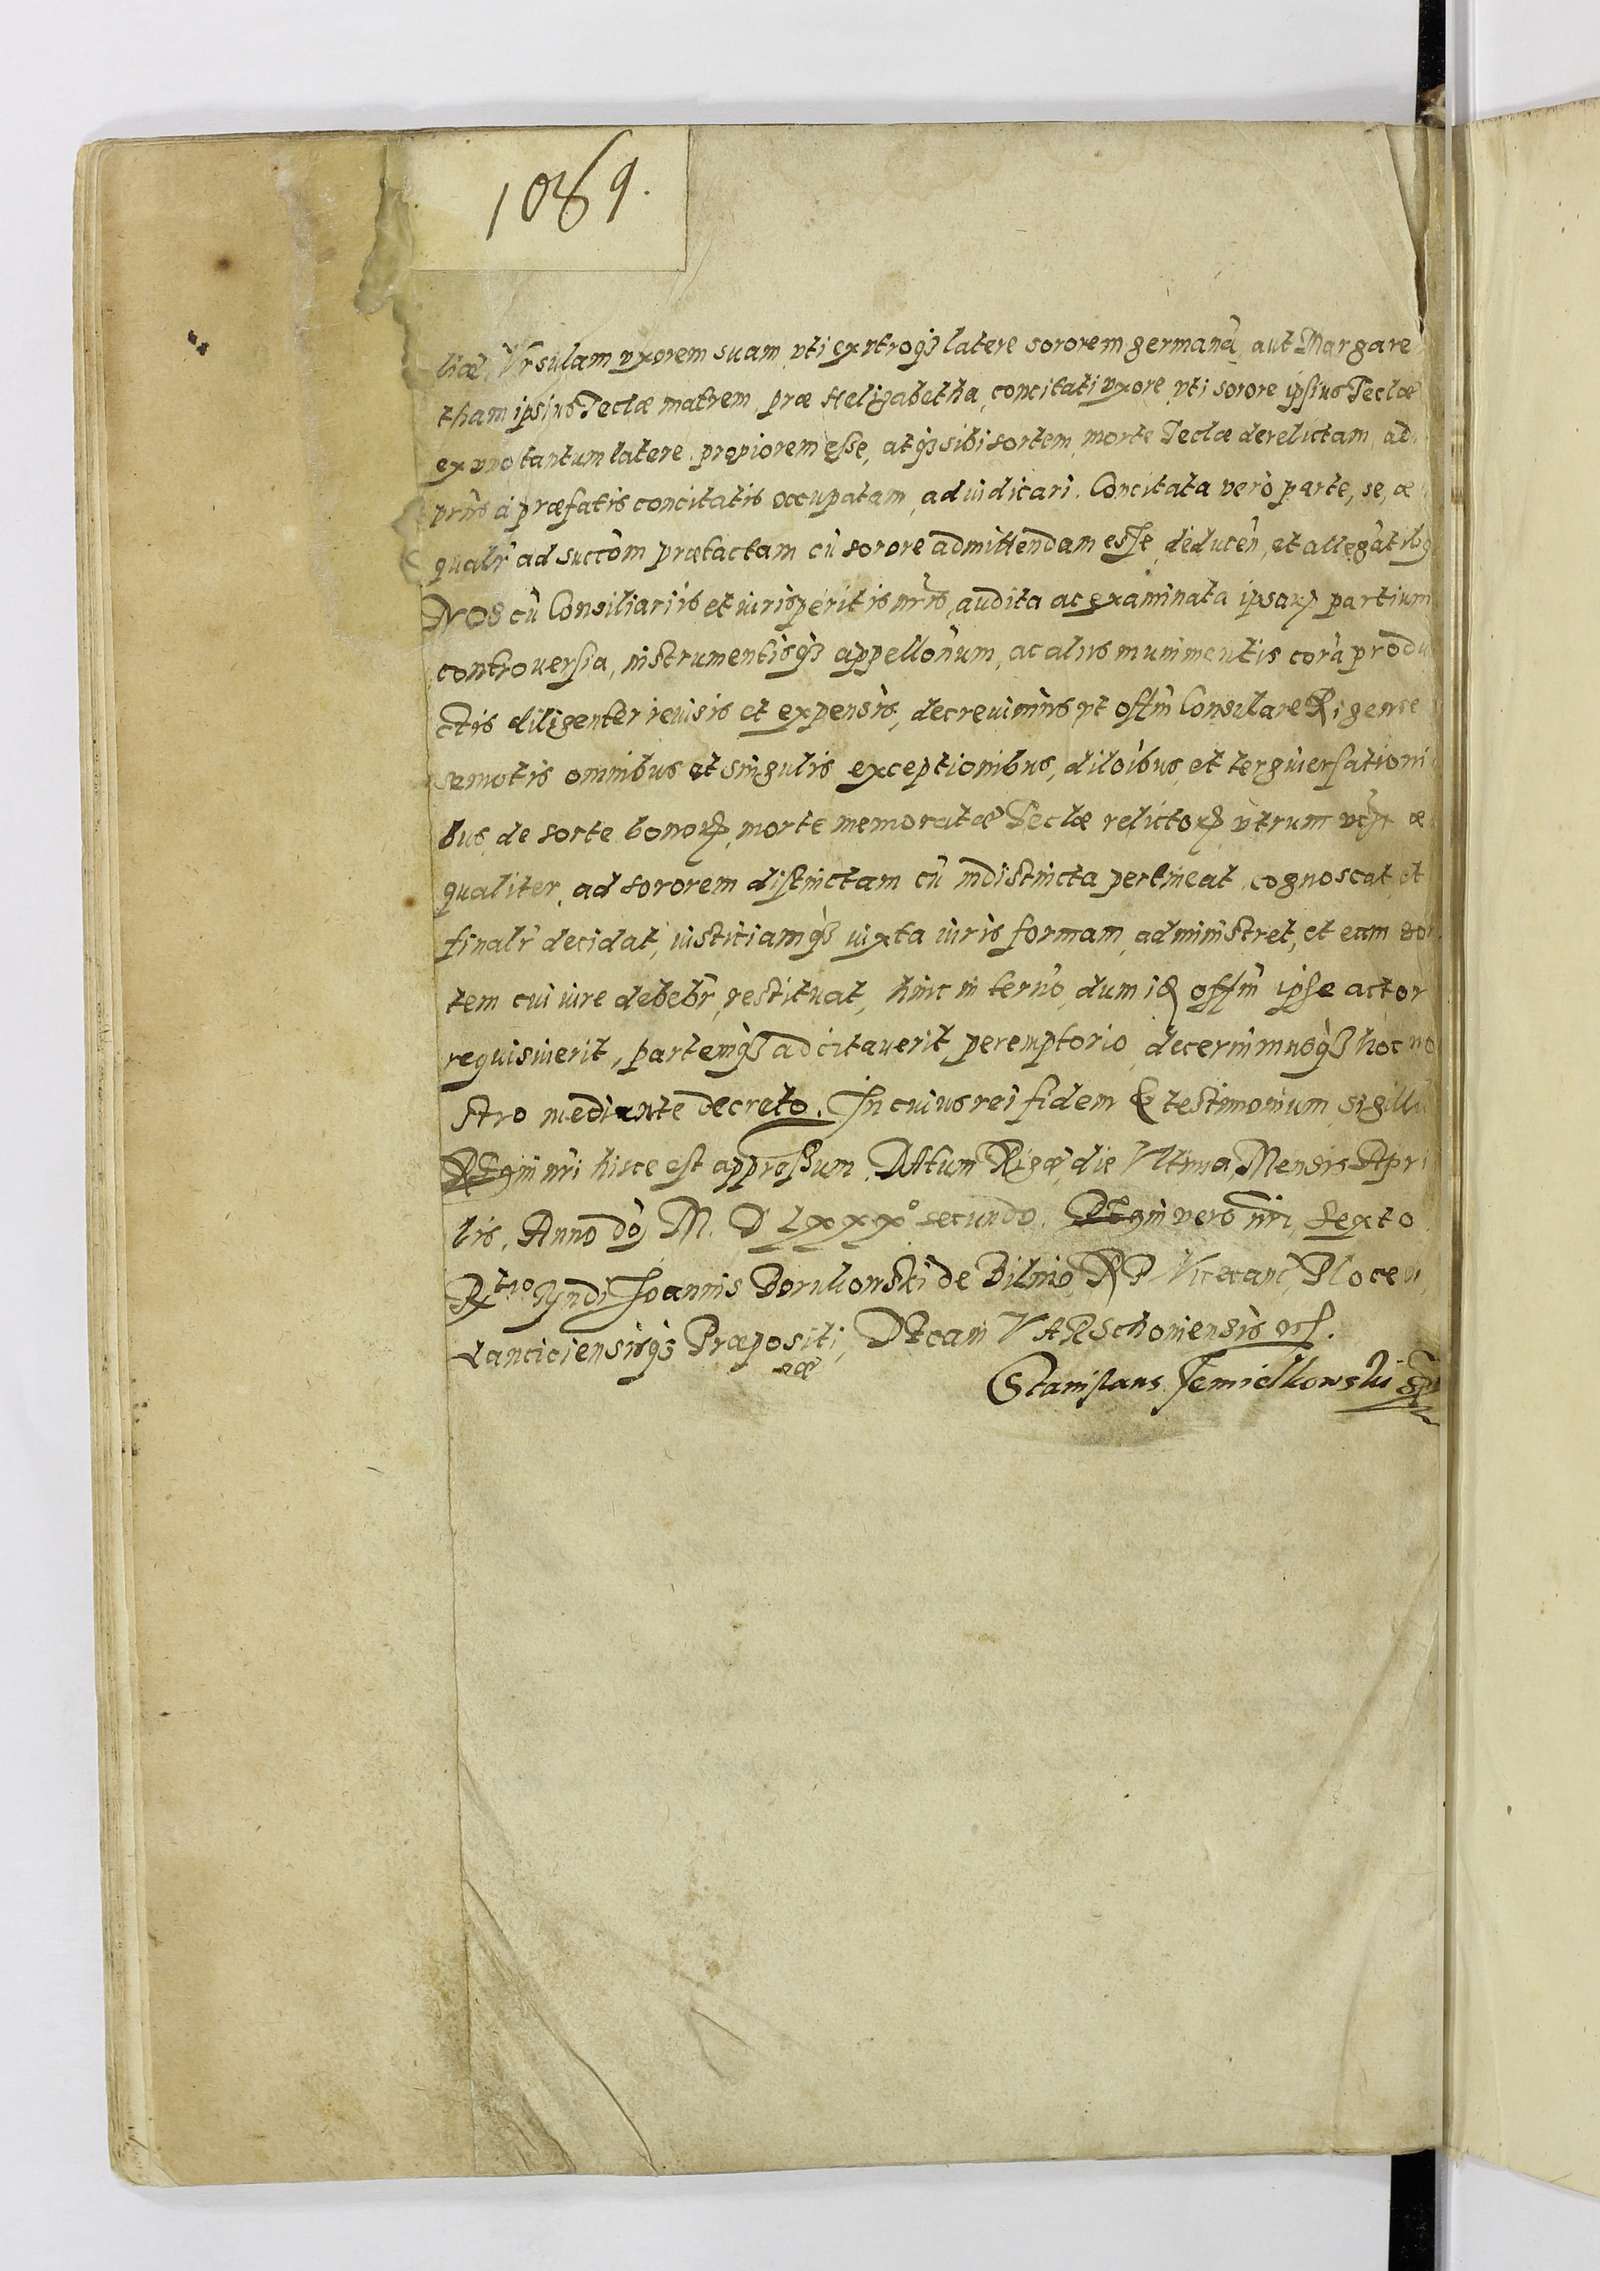 1069.
liæ, Vrsulam vxorem suam, vti ex vtroqȝ latere sororem germanã, aut Margare
tham ipsius Teclæ matrem, præ Heligabetha, concitati vxore, vti sorore ipsius Teclæ
ex vno tantum latere, propiorem esse, atqȝ sibi sortem, morte Teclæ derelictam, ad
prñs a præfatis concitatis occupatam, adiudicari. Concitata verò parte, se, æ
qualr̃ ad succõm prætactam cũ sorore admittendam esse, deducen̄,
NOS cũ Consiliariis et iurisperitis nr̃is, audita ac examinata ipsaꝝ partium
controuersia, instrumentisqȝ appellõnum, ac aliis munimentis corã produ
ctis diligenter reuisis et expensis, decreuimus, vt offm̃ Consulare Rigense
semotis omnibus et singulis exceptionibus, dilõibus, et terguiersationi
bus, de sorte bonoꝝ, morte memoratæ Teclæ relictoꝝ, vtrum æ
qualiter, ad sororem distinctam cũ indistincta pertineat, cognoscat, et
finalr̃ decidat, iustitiamqȝ iuxta iuris formam, administret, et eam sor
tem cui iure debebr̃, restituat, hinc in termõ, dum id offm̃ ipse actor
requisiuerit, partemqȝ adcitauerit peremptorio, decernimusqȝ hoc no
stro mediante decreto. In cuius rei fidem & testimonium, sigillũ
Regni nr̃i hisce est appressum. DAtum Rigæ, die Vltima, Mensis Apri
lis, Anno dñi M. D LXXXº secundo. REgni vero nr̃i, sexto
Rtio Rn̄di Ioannis Borukowski de Bilino, R P Vicecanc̃, Plocen̄,
Lanciciensisqȝ Præpositi, DEcani VARSchouiensis
Stanislaus Temielkowski